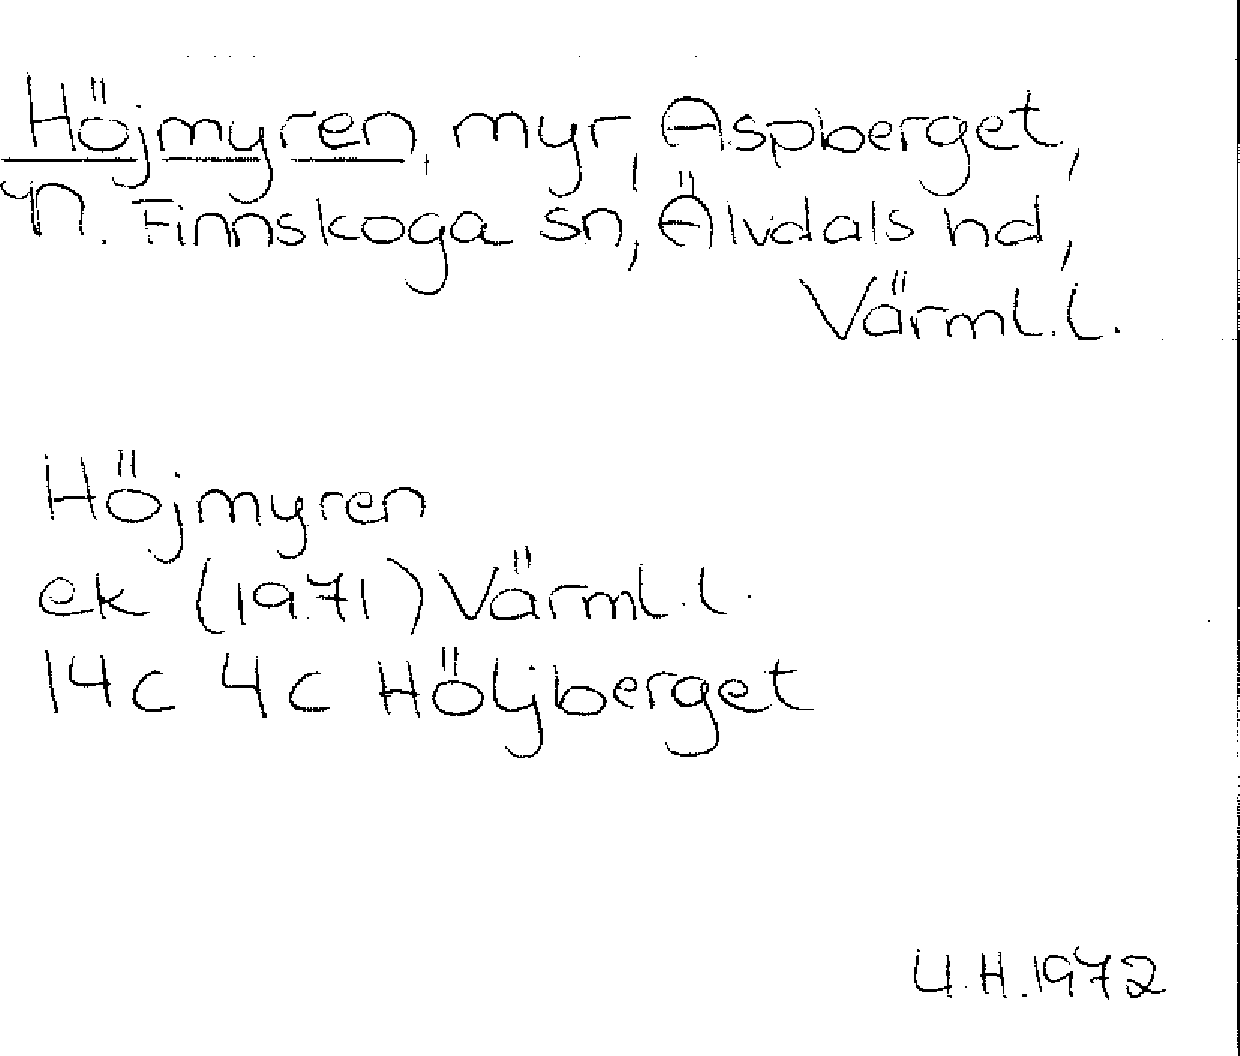 Höjmyren, myr, Aspberget,
N. Finnskoga sn, Älvdals hd,
Värml.l.
Höjmyren
ek (1971) Värml.l.
14c 4c Höljberget
U.H.1972